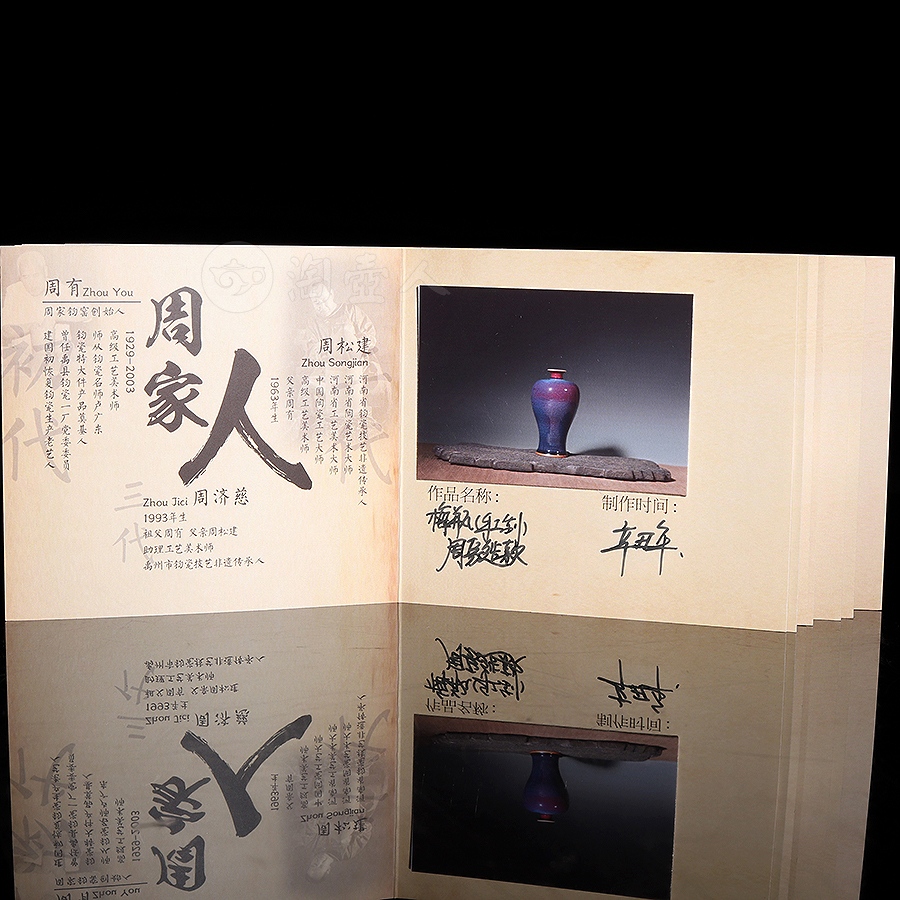 周有 Zhou You
周家钧窑创始人
1929-2003
高级工艺美术师
师从钧瓷名师卢广东
钧瓷特大件产品奠基人
曾任禹县钧瓷一厂党委委员
建国初恢复钧瓷生产老艺人
初代
周家人
周松建
Zhou Songjian
河南省钧瓷技艺非遗传承人
河南省陶瓷艺术大师
河南省工艺美术大师
中国陶瓷工艺大师
高级工艺美术师
父亲周有
1963年生
二代
三代
Zhou Jici 周济慈
1993年生
祖父周有 父亲周松建
助理工艺美术师
禹州市钧瓷技艺非遗传承人
淘壶人
作品名称：
梅瓶
制作时间：
辛丑年.